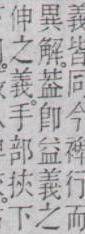 義皆同今稗行而
異解葢卽益義之
伸之義手部挾下